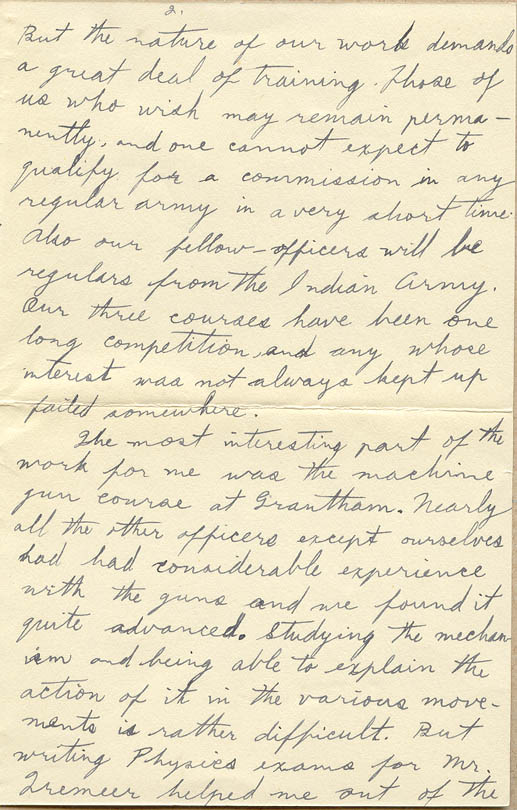 2.
But the nature of our work demands
a great deal of training. Those of
us who wish may remain perma-
nently, and one cannot expect to
qualify for a commission in any
regular army in a very short time.
Also our fellow-officers will be
regulars from the Indian Army.
Our three courses have been one
long competition and any whose
interest was not always kept up
failed somewhere.
The most interesting part of the
work for me was the machine
gun course at Grantham. Nearly
all the other officers except ourselves
had had considerable experience
with the guns and we found it
quite advanced. Studying the mechan-
ism and being able to explain the
action of it in the various move-
ments is rather difficult. But
writing Physics exams for Mr.
helped me out of the